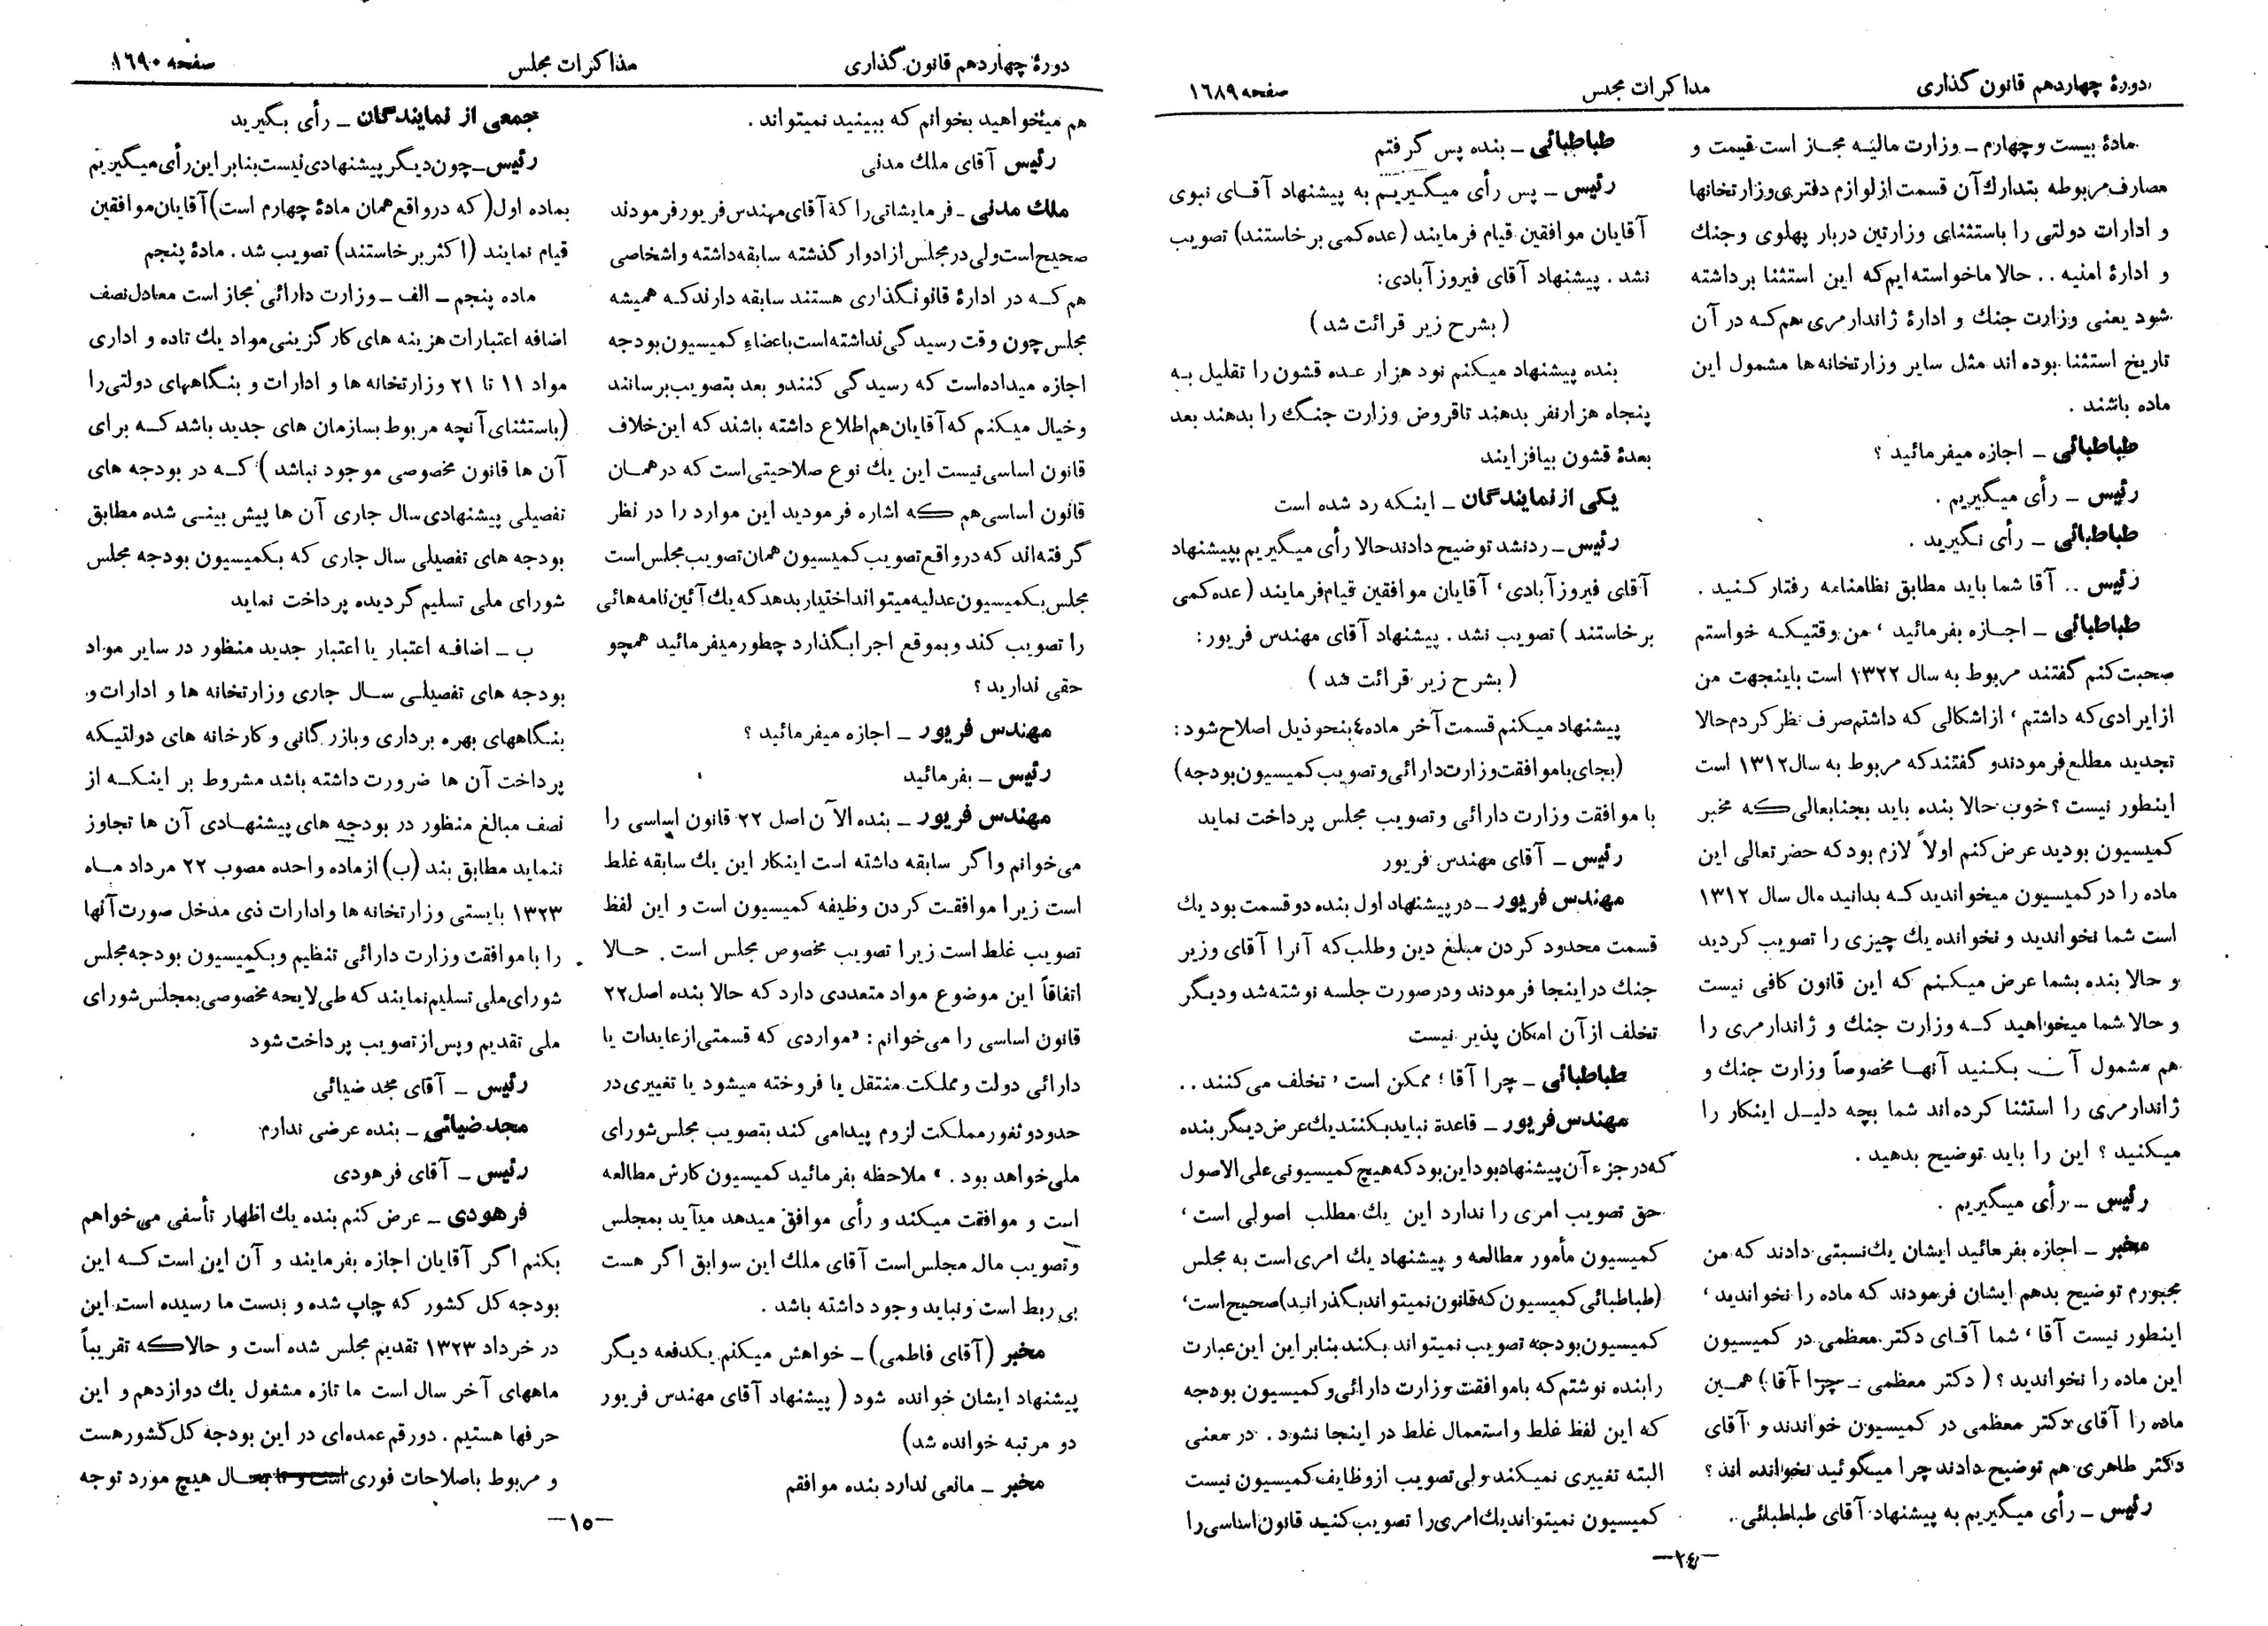 دورهٔ چهاردهم قانون گذاری
مذاکرات مجلس
صفحه ۱٦۸۹
مادهٔ بیست وچهارم ــ وزارت مالیه مجاز است قیمت و
مصارف مربوطه بتدارك آن قسمت از لوازم دفتری وزارتخانها
و ادارات دولتی را باستثنای وزارتین دربار پهلوی وجنك
و ادارهٔ امنیه .. حالا ماخواسته‌ایم که این استثنا برداشته
شود یعنی وزارت جنك و ادارهٔ ژاندارمری هم‌که در آن
تاریخ استثنا بوده اند مثل سایر وزارتخانه ها مشمول این
ماده باشند .
طباطبائی ــ اجازه میفرمائید ؟
رئیس ــ رأی میگیریم .
طباطبائی ــ رأی نگیرید .
رئیس .. آقا شما باید مطابق نظامنامه رفتار کنید .
طباطبائی ــ اجازه بفرمائید ، من وقتیکه خواستم
صحبت کنم گفتند مربوط به سال ۱۳۲۲ است باینجهت من
از ایرادی که داشتم ، از اشکالی که داشتم صرف نظر کردم حالا
تجدید مطلع فرمودند و گفتند که مربوط به سال ۱۳۱۲ است
اینطور نیست ؟ خوب حالا بنده باید بجنابعالی که مخبر
کمیسیون بودید عرض کنم اولاً لازم بود که حضرتعالی این
ماده را در کمیسیون میخواندید که بدانید مال سال ۱۳۱۲
است شما نخواندید و نخوانده یك چیزی را تصویب کردید
و حالا بنده بشما عرض میکنم که این قانون کافی نیست
و حالا شما میخواهید که وزارت جنك و ژاندارمری را
هم مشمول آن بکنید آنها مخصوصاً وزارت جنك و
ژاندارمری را استثنا کرده اند شما بچه دلیل اینکار را
میکنید ؟ این را باید توضیح بدهید .
رئیس ــ رأی میگیریم .
مخبر ــ اجازه بفرمائید ایشان یك نسبتی دادند که من
مجبورم توضیح بدهم ایشان فرمودند که ماده را نخواندید ،
اینطور نیست آقا ، شما آقای دکتر معظمی در کمیسیون
این ماده را نخواندید ؟ ( دکتر معظمی ــ چرا آقا ) همین
ماده را آقای دکتر معظمی در کمیسیون خواندند و آقای
دکتر طاهری هم توضیح دادند چرا میگوئید نخوانده اند ؟
رئیس ــ رأی میگیریم به پیشنهاد آقای طباطبائی ..
طباطبائی ــ بنده پس گرفتم
رئیس ــ پس رأی میگیریم به پیشنهاد آقای نبوی
آقایان موافقین قیام فرمایند (عده کمی برخاستند) تصویب
نشد . پیشنهاد آقای فیروز آبادی:
( بشرح زیر قرائت شد )
بنده پیشنهاد میکنم نود هزار عده قشون را تقلیل به
پنجاه هزار نفر بدهند تاقروض وزارت جنگ را بدهند بعد
بعدهٔ قشون بیافزایند
یکی از نمایندگان ــ اینکه رد شده است
رئیس ــ رد نشد توضیح دادند حالا رأی میگیریم بپیشنهاد
آقای فیروز آبادی ، آقایان موافقین قیام فرمایند ( عده کمی
برخاستند ) تصویب نشد . پیشنهاد آقای مهندس فریور:
( بشرح زیر قرائت شد )
پیشنهاد میکنم قسمت آخر ماده ٤ بنحو ذیل اصلاح شود :
(بجای باموافقت وزارت دارائی و تصویب کمیسیون بودجه)
با موافقت وزارت دارائی و تصویب مجلس پرداخت نماید
رئیس ــ آقای مهندس فریور
مهندس فریور ــ در پیشنهاد اول بنده دو قسمت بود یك
قسمت محدود کردن مبلغ دین وطلب که آنرا آقای وزیر
جنك در اینجا فرمودند و در صورت جلسه نوشته شد و دیگر
تخلف از آن امکان پذیر نیست
طباطبائی ــ چرا آقا ؛ ممکن است ، تخلف می‌کنند ..
مهندس فریور ــ قاعدة نباید بکنند یك عرض دیگر بنده
که در جزء آن پیشنهاد بود این بود که هیچ کمیسیونی علی الاصول
حق تصویب امری را ندارد این یك مطلب اصولی است ،
کمیسیون مأمور مطالعه و پیشنهاد یك امری است به مجلس
(طباطبائی کمیسیون که قانون نمیتواند بگذرانید) صحیح است ،
کمیسیون بودجه تصویب نمیتواند بکند بنابر این این عبارت
رابنده نوشتم که باموافقت وزارت دارائی و کمیسیون بودجه
که این لفظ غلط و استعمال غلط در اینجا نشود . در معنی
البته تغییری نمیکند ولی تصویب از وظایف کمیسیون نیست
کمیسیون نمیتواند یك امری را تصویب کنید قانون اساسی را
ــ۲٤ــ
دورهٔ چهاردهم قانون گذاری
مذاکرات مجلس
صفحه ۱٦۹۰
هم میخواهید بخوانم که ببینید نمیتواند .
رئیس آقای ملك مدنی
ملك مدنی ــ فرمایشاتی را که آقای مهندس فریور فرمودند
صحیح است ولی در مجلس از ادوار گذشته سابقه داشته و اشخاصی
هم که در ادارهٔ قانونگذاری هستند سابقه دارند که همیشه
مجلس چون وقت رسیدگی نداشته است باعضاء کمیسیون بودجه
اجازه میداده است که رسیدگی کنند و بعد بتصویب برسانند
و خیال میکنم که آقایان هم اطلاع داشته باشند که این خلاف
قانون اساسی نیست این یك نوع صلاحیتی است که در همان
قانون اساسی هم که اشاره فرمودید این موارد را در نظر
گرفته‌اند که در واقع تصویب کمیسیون همان تصویب مجلس است
مجلس بکمیسیون عدلیه میتواند اختیار بدهد که یك آئین نامه هائی
را تصویب کند و بموقع اجرا بگذارد چطور میفرمائید همچو
حقی ندارید ؟
مهندس فریور ــ اجازه میفرمائید ؟
رئیس ــ بفرمائید
مهندس فریور ــ بنده الآن اصل ۲۲ قانون اساسی را
می‌خوانم و اگر سابقه داشته است اینکار این یك سابقه غلط
است زیرا موافقت کردن وظیفه کمیسیون است و این لفظ
تصویب غلط است زیرا تصویب مخصوص مجلس است . حالا
اتفاقاً این موضوع مواد متعددی دارد که حالا بنده اصل ۲۲
قانون اساسی را می‌خوانم : «مواردی که قسمتی از عایدات یا
دارائی دولت و مملکت منتقل یا فروخته میشود یا تغییری در
حدود و ثغور مملکت لزوم پیدا می کند بتصویب مجلس شورای
ملی خواهد بود . » ملاحظه بفرمائید کمیسیون کارش مطالعه
است و موافقت میکند و رأی موافق میدهد میآید بمجلس
و تصویب مال مجلس است آقای ملك این سوابق اگر هست
بی ربط است و نباید وجود داشته باشد .
مخبر (آقای فاطمی) ــ خواهش میکنم یکدفعه دیگر
پیشنهاد ایشان خوانده شود ( پیشنهاد آقای مهندس فریور
دو مرتبه خوانده شد)
مخبر ــ مانعی ندارد بنده موافقم
جمعی از نمایندگان ــ رأی بگیرید
رئیس ــ چون دیگر پیشنهادی نیست بنابر این رأی میگیریم
بماده اول( که در واقع همان مادهٔ چهارم است) آقایان موافقین
قیام نمایند (اکثر برخاستند) تصویب شد . مادهٔ پنجم
ماده پنجم ــ الف ــ وزارت دارائی مجاز است معادل نصف
اضافه اعتبارات هزینه های کارگزینی مواد یك تاده و اداری
مواد ۱۱ تا ۲۱ وزارتخانه ها و ادارات و بنگاههای دولتی را
(باستثنای آنچه مربوط بسازمان های جدید باشد که برای
آن ها قانون مخصوصی موجود نباشد ) که در بودجه های
تفصیلی پیشنهادی سال جاری آن ها پیش بینی شده مطابق
بودجه های تفصیلی سال جاری که بکمیسیون بودجه مجلس
شورای ملی تسلیم گردیده پرداخت نماید
ب ــ اضافه اعتبار یا اعتبار جدید منظور در سایر مواد
بودجه های تفصیلی سال جاری وزارتخانه ها و ادارات و
بنگاههای بهره برداری و بازرگانی و کارخانه های دولتیکه
پرداخت آن ها ضرورت داشته باشد مشروط بر اینکه از
نصف مبالغ منظور در بودجه های پیشنهادی آن ها تجاوز
ننماید مطابق بند (ب) از ماده واحده مصوب ۲۲ مرداد ماه
۱۳۲۳ بایستی وزارتخانه ها و ادارات ذی مدخل صورت آنها
را با موافقت وزارت دارائی تنظیم و بکمیسیون بودجه مجلس
شورای ملی تسلیم نمایند که طی لایحه مخصوصی بمجلس شورای
ملی تقدیم و پس از تصویب پرداخت شود
رئیس ــ آقای مجد ضیائی
مجد ضیائی ــ بنده عرضی ندارم
رئیس ــ آقای فرهودی
فرهودی ــ عرض کنم بنده یك اظهار تأسفی می‌خواهم
بکنم اگر آقایان اجازه بفرمایند و آن این است که این
بودجه کل کشور که چاپ شده و بدست ما رسیده است این
در خرداد ۱۳۲۳ تقدیم مجلس شده است و حالا که تقریباً
ماههای آخر سال است ما تازه مشغول یك دوازدهم و این
حرفها هستیم . دو رقم عمده‌ای در این بودجه کل کشور هست
و مربوط باصلاحات فوری است و تا بحال هیچ مورد توجه
ــ۱٥ــ